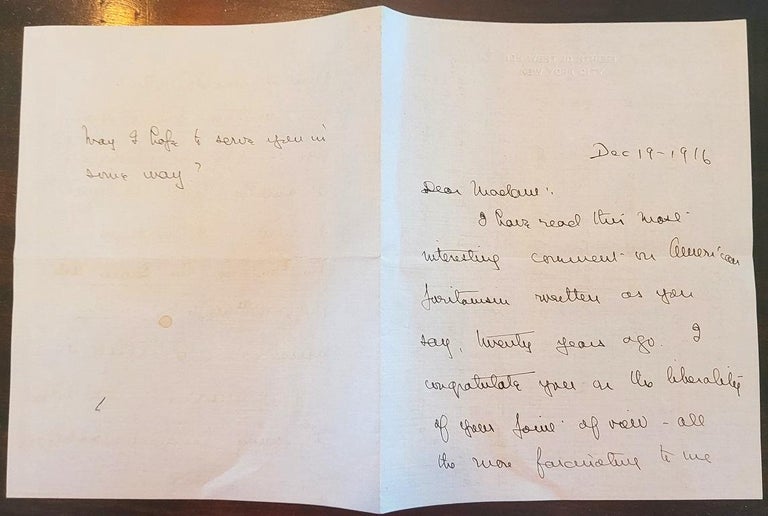 NEW YORK CITY
Dec 19-1916
Dear Madam:
I have read this most
interesting comment on American
Puritanism written as you
say, twenty years ago. I
congratulate you on the liberality
of your point of view - all
the more fascinating to me
May I hope to serve you in
some way?